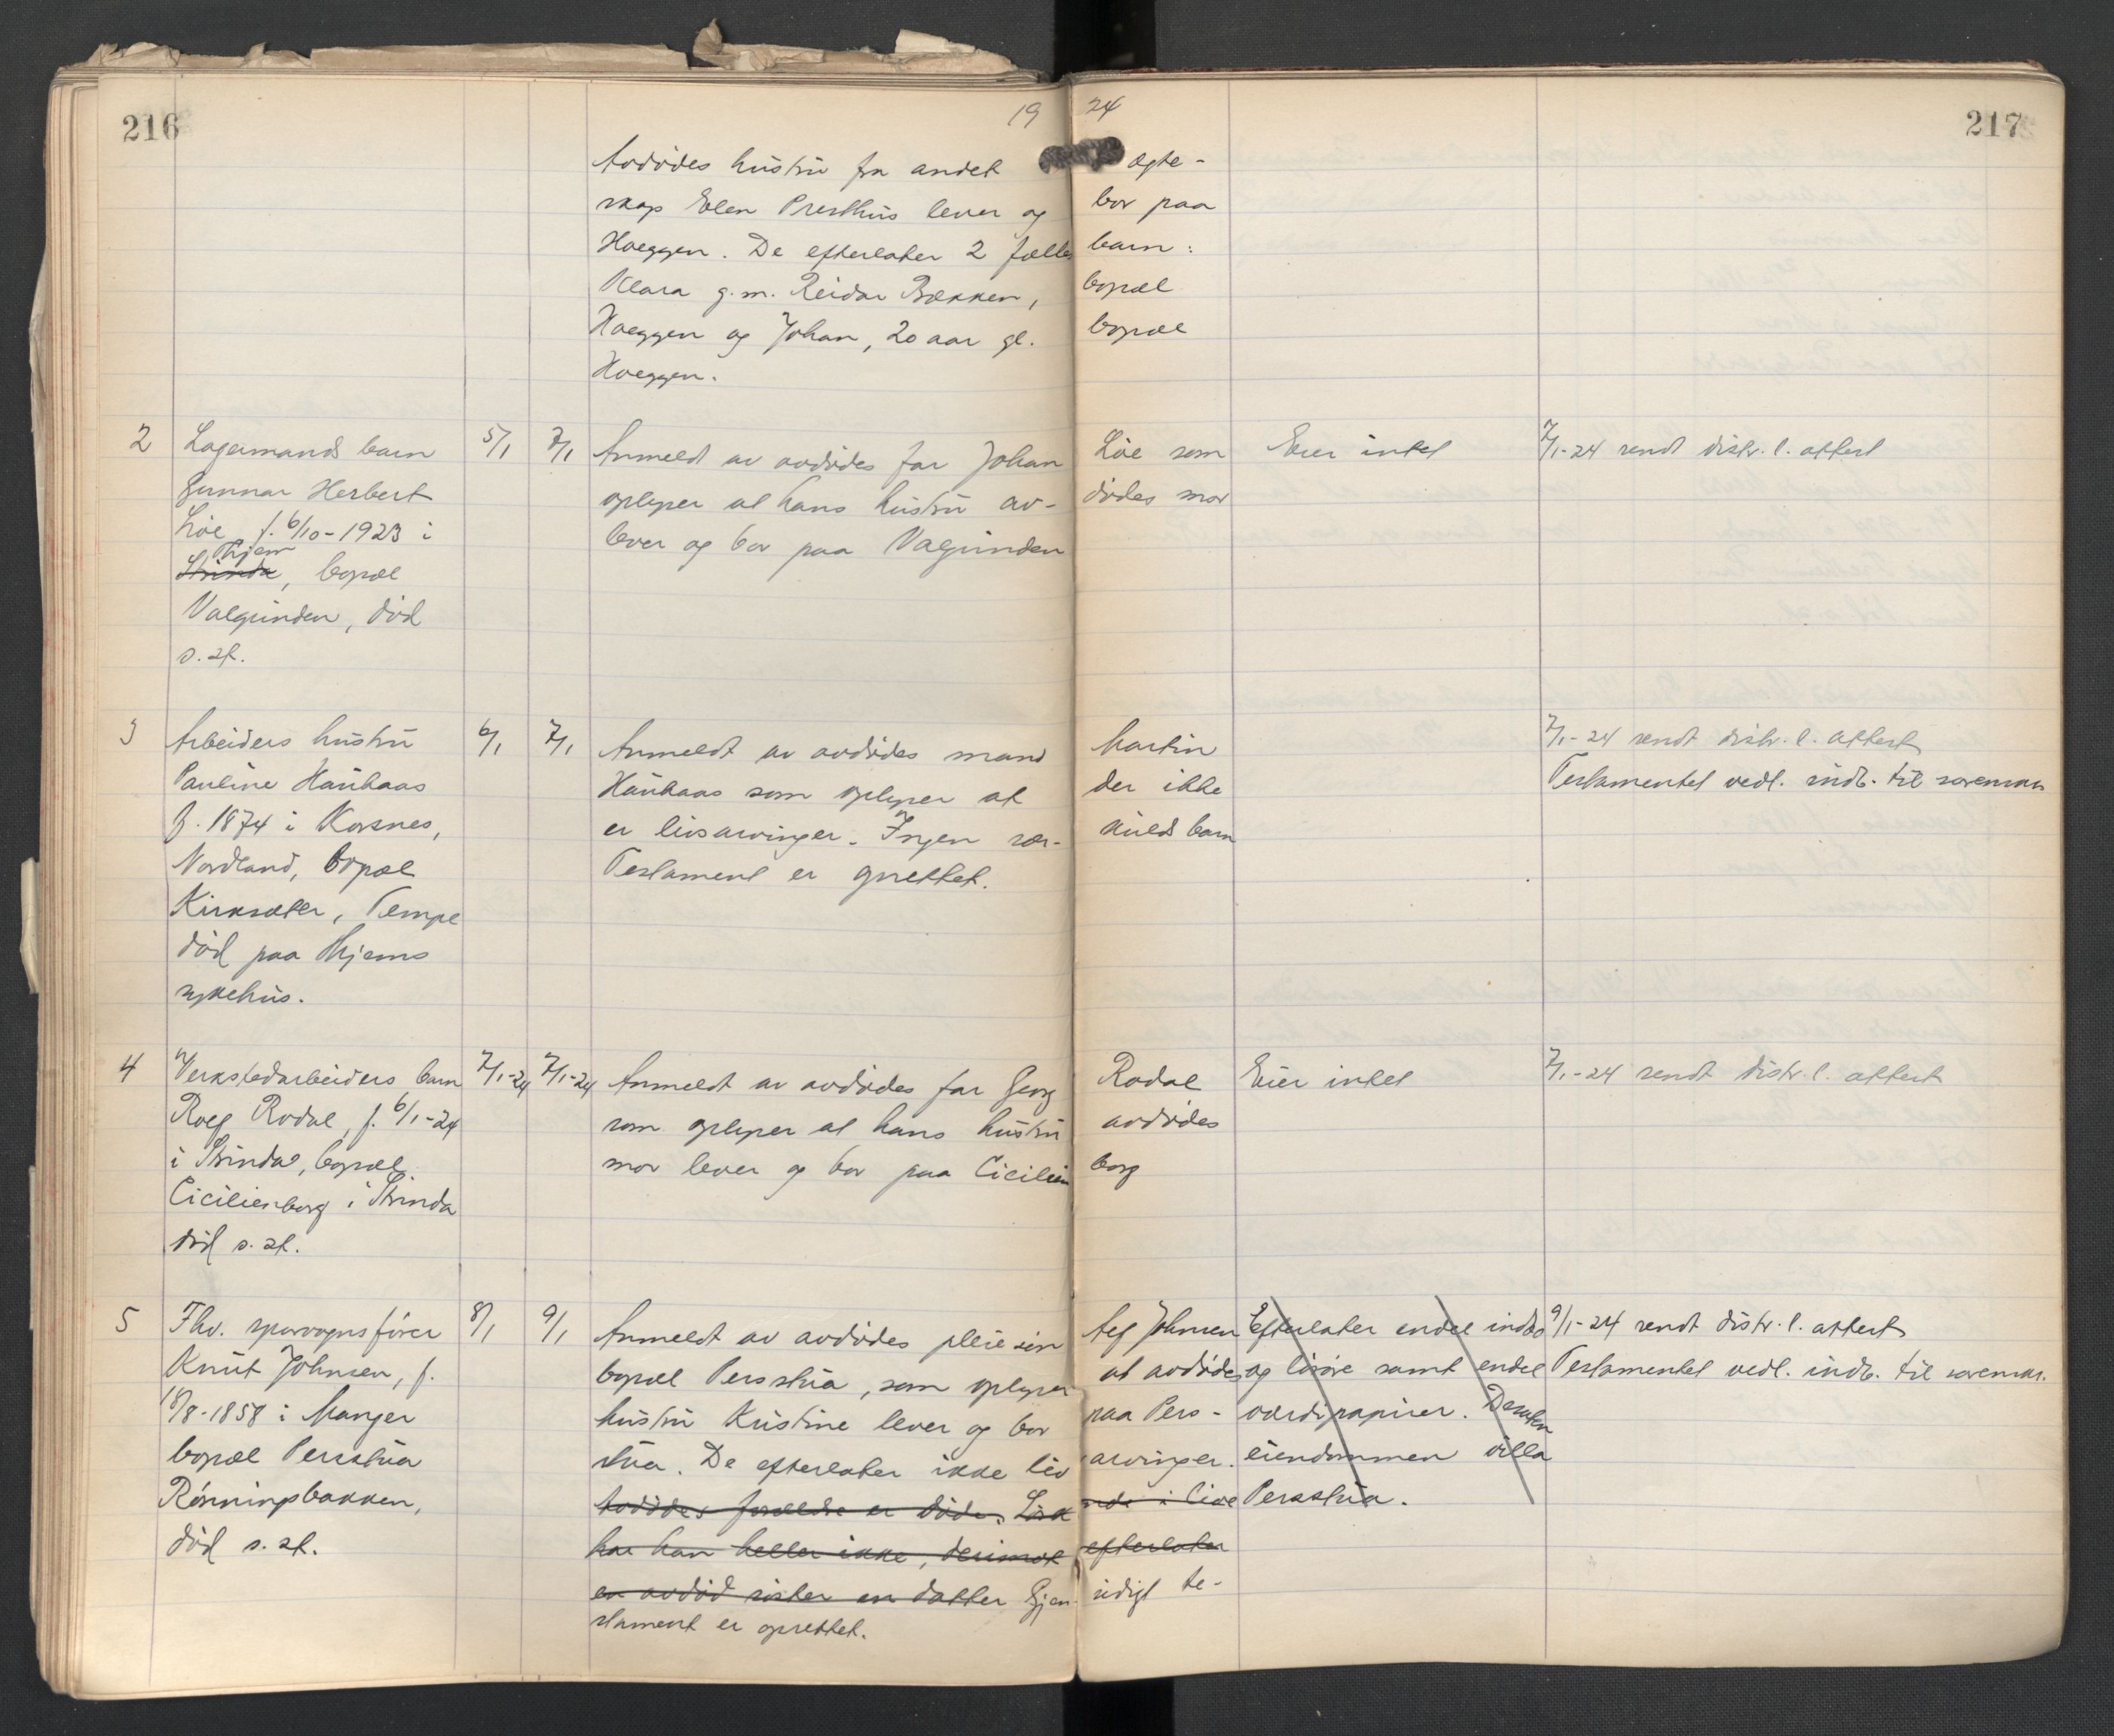 216
19 24
217
Avdødes hustru fra andet ægte-
skap Elen Presthus lever og bor paa
Hoeggen. De efterlater 2 fælles barn:
Klara g.m. Reidar Bækken, bopæl
Hoeggen og Johan, 20 aar gl. bopæl
Hoeggen.
2
Lagermands barn
Gunnar Herbert
Löe, f. 6/10-1923 i
Thjem
Strinda, bopæl
Valgrinden, död
s. st.
5/1
7/1
Anmeldt av avdødes far Johan Löe som
oplyser at hans hustru avdödes mor
lever og bor paa Valgrinden
Eier intet
7/1-24 sendt distr. l. attest
3
Arbeiders hustru
Pauline Hauhaas
f. 1874 i Korsnes,
Nordland, bopæl
Kirksæter, Tempe
död paa Thjems
sykehus.
6/1
7/1
Anmeldt av avdødes mand Martin
Hauhaas som oplyser at der ikke
er livsarvinger. Ingen særkulds barn
Testament er oprettet.
7/1-24 sendt distr. l. attest
Testamentet vedl. indb. til sorenskr.
4
Verkstedarbeiders barn
Rolf Rodal, f. 6/1-24
i Strinda, bopæl
Cicilienborg i Strinda
död s. st.
7/1-24
7/1-24
Anmeldt av avdødes far Georg Rodal
som oplyser at hans hustru avdödes
mor lever og bor paa Cicilienborg
Eier intet
7/1-24 sendt distr. l. attest
5
Fhv. sporvognsförer
Knut Johnsen, f.
18/8-1858 i Manger
bopæl Persstua
Rönningsbakken,
död s. st.
8/1
9/1
Anmeldt av avdødes pleiesön Alf Johnsen
bopæl Persstua, som oplyser at avdödes
hustru Kristine lever og bor paa Pers-
stua. De efterlater ikke livsarvinger.
Avdödes forældre er döde. Söskende i live
har han heller ikke, derimot efterlater
en avdöd söster en datter Gjensidigt te-
stament er oprettet.
Efterlater endel indbo
og lösöre samt endel
værdipapirer. Desuten
eiendommen villa
Persstua.
9/1-24 sendt distr. l. attest
Testamentet vedl. indb. til sorenskr.